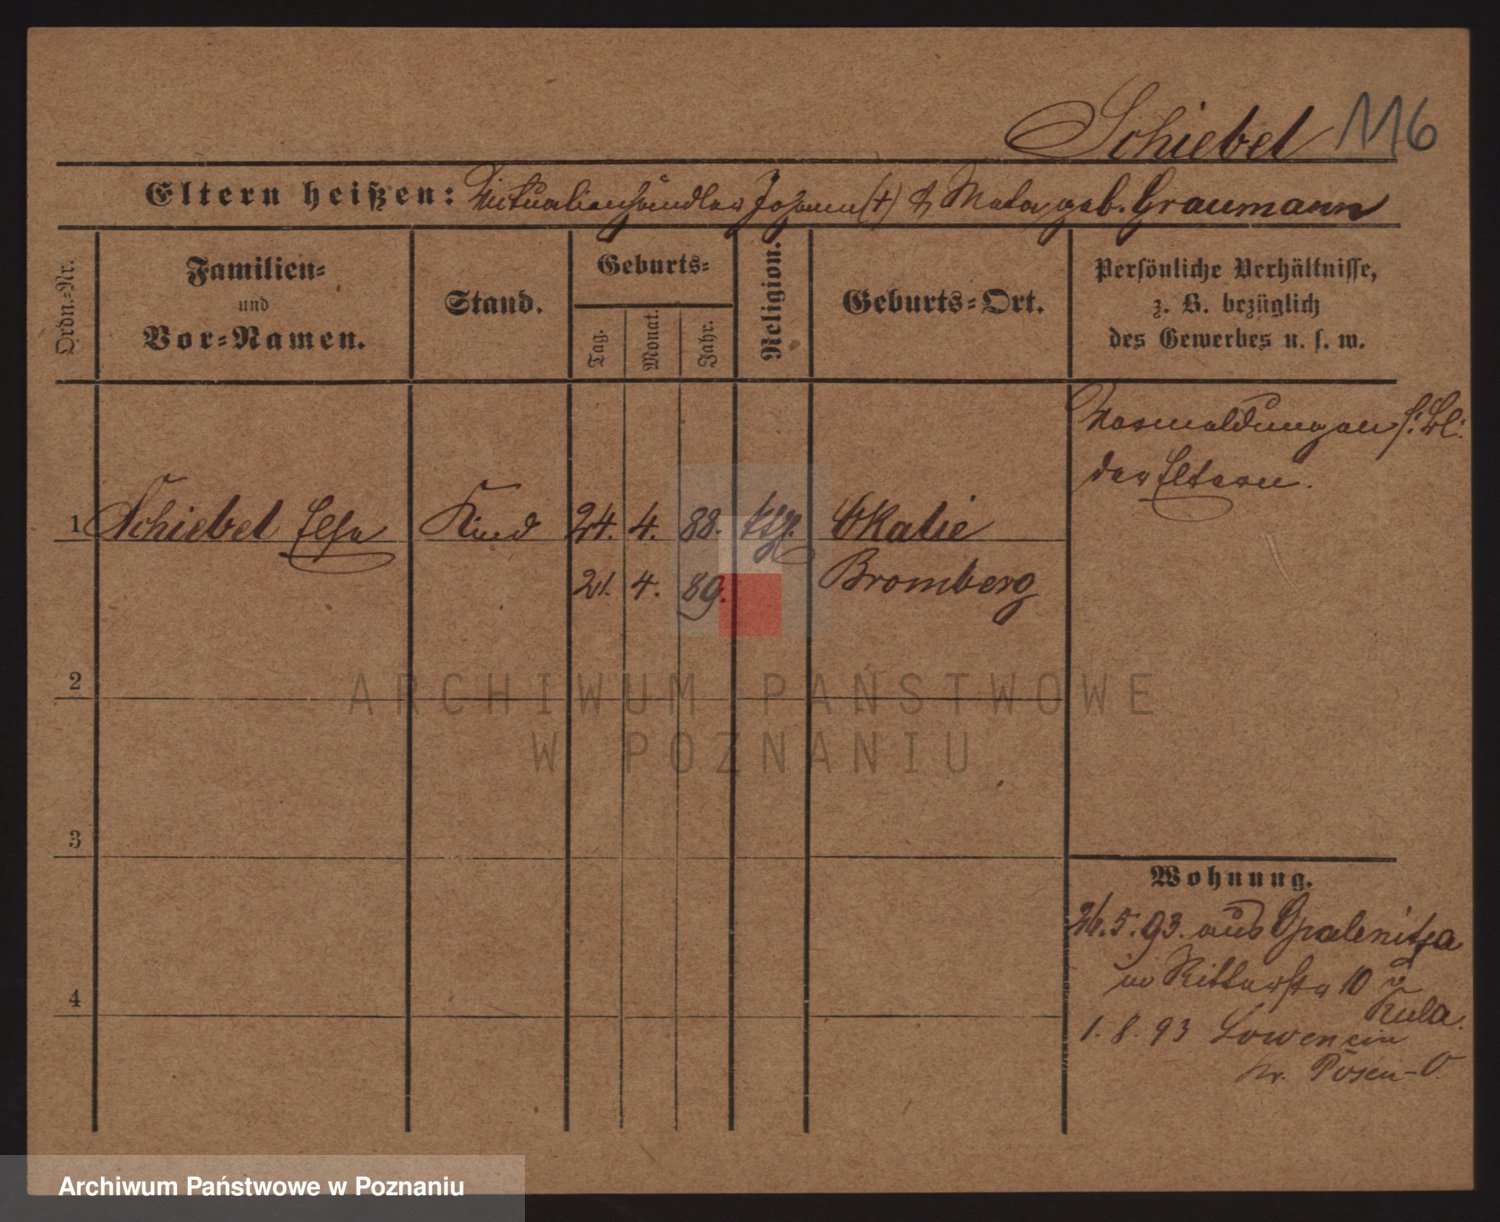 Schiebel 116
Eltern heißen: Victualienhändler Johann (+) & Meta geb. Graumann
Ordn.-Nr.
Familien-
und
Vor-Namen.
Stand.
Geburts-
Tag.
Monat.
Jahr.
Religion.
Geburts-Ort.
Persönliche Verhältnisse,
z. B. bezüglich
des Gewerbes u. s. w.
Vormeldungen s. Bl.
der Eltern.
1 Schiebel Else Kind 24. 4. 88. Okalie
21. 4. 89. Bromberg
2
3
4
Wohnung.
26. 5. 93. aus Opalenitza
in Ritterstr 10 v
Kula.
1. 8. 93 Lowencin
Kr. Posen-O.
ARCHIWUM PAŃSTWOWE
W POZNANIU
Archiwum Państwowe w Poznaniu